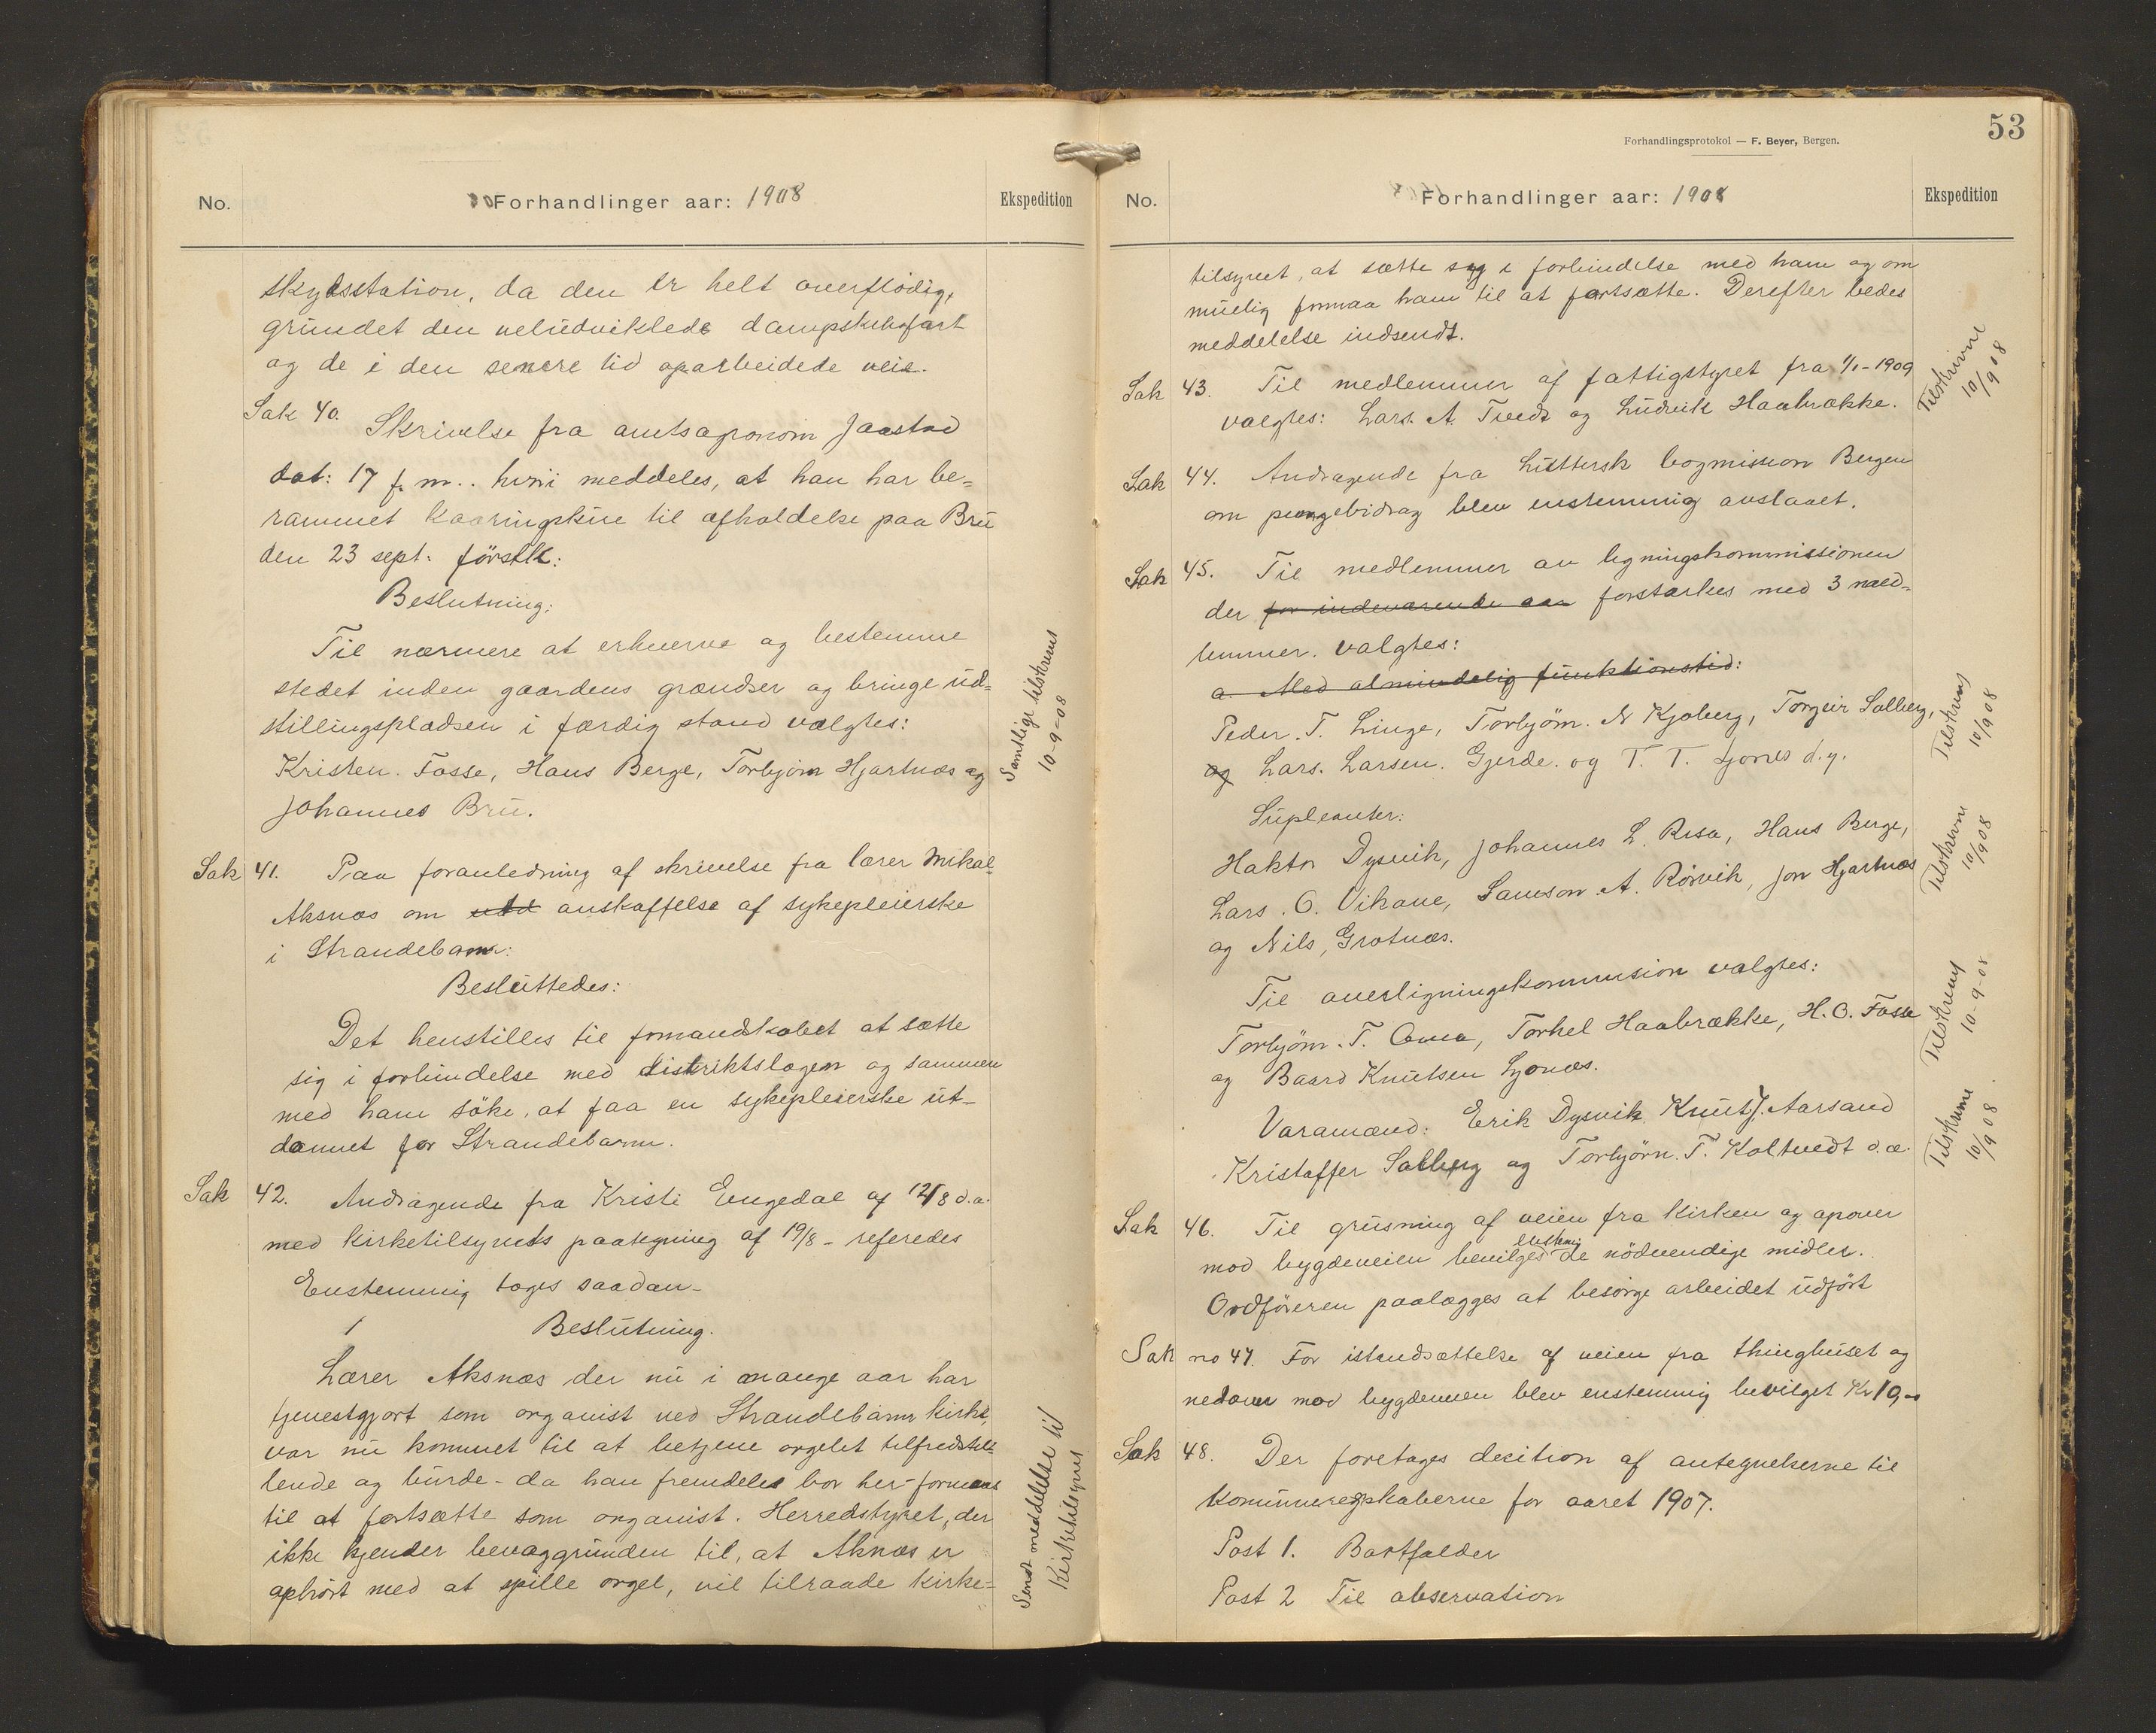 No.
Forhandlinger aar: 1908
Ekspedition
skydsstation, da den er helt overflödig,
grundet den veludviklede dampskibsfart
og de i den senere tid oparbeidede veie.
Sak 40. Skrivelse fra amtsagronom Jaastad
dat: 17 f. m.. hvori meddeles, at han har be=
rammet kaaringskue til afholdelse paa Bru
den 23 sept. förstk:
Beslutning:
Til nærmere at erhverve og bestemme
stedet inden gaardens grændser og bringe ud=
stillingspladsen i færdig stand valgtes:
Kristen. Fosse, Hans Berge, Torbjörn Hjartnæs og
Johannes Bru.
Samtlige tilskrevet
10-9-08
Sak 41. Paa foranledning af skrivelse fra lærer Mikal
Aksnæs om anskaffelse af sykepleierske
i Strandebarm:
Besluttedes:
Det henstilles til formandskabet at sætte
sig i forbindelse med distriktslægen og sammen
med ham söke, at faa en sykepleierske ut-
dannet for Strandebarm.
Sak 42. Andragende fra Kristi Engedal af 12/8 d.a.
med kirketilsynets paategning af 19/8 - referedes
Enstemmig toges saadan-
Beslutning.
Lærer Aksnæs der nu i mange aar har
tjenestgjort som organist ved Strandebarm kirke,
var nu kommet til at betjene orgelet tilfredstil-
lende og burde - da han fremdeles bor her - formaas
til at fortsætte som organist. Herredstyret, der
ikke kjender bevæggrunden til, at Aknæs er
ophört med at spille orgel, vil tilraade kirke=
Sendt meddelelse til
Kirketilsynet
53
Forhandlingsprotokol — F. Beyer, Bergen.
No.
Forhandlinger aar: 1908
Ekspedition
tilsynet, at sætte seg i forbindelse med ham og om
muelig formaa ham til at fortsætte. Derefter bedes
meddelelse indsendt.
Sak 43. Til medlemmer af fattigstyret fra 1/1-1909
valgtes: Lars. A. Tvedt og Ludvik Haabrække.
Tilskrevne
10/9 08
Sak 44. Andragende fra Luttersk bogmission Bergen
om pengebidrag blev enstemmig avslaaet.
Sak 45. Til medlemmer av ligningskommissionen
der for indeværende aar forstærkes med 3 med-
lemmer. valgtes:
a. Med almindelig funktionstid:
Peder. T. Linge, Torbjörn. N Kjoberg, Torgeir Solberg,
og Lars. Larsen. Gjerde. og T. T. Ljones d.y.
Tilskrevet
10/9 08
Supleanter:
Haktor Dysvik, Johannes L. Risa, Hans Berge,
Lars. O. Vikane, Samson. A. Rörvik, Jon Hjartnæs
og Nils, Grotnæs.
Tilskrevne
10/9 08
Til overligningskommission valgtes:
Torbjörn. T. Oma, Torkel Haabrække, H. O. Fosse
og Baard Knutsen Ljonæs.
Tilskrevet
10-9-08
Varamænd: Erik Dysvik Knut J. Aarsand
Kristoffer Solberg og Torbjörn. T. Koltvedt d.æ.
Tilskrevne
10/9 08.
Sak 46. Til grusning af veien fra kirken og opover
mod bygdeveien bevilges enstemig de nödvendige midler.
Ordföreren paalægges at besörge arbeidet udfört
Sak no 47. For istandsættelse af veien fra thinghuset og
nedover mod bygdeveien blev enstemmig bevilget Kr 10,-
Sak 48. Der foretages decition af antegnelserne til
kommuneregnskaberne for aaret 1907.
Post 1. Bortfalder
Post 2 Til observation